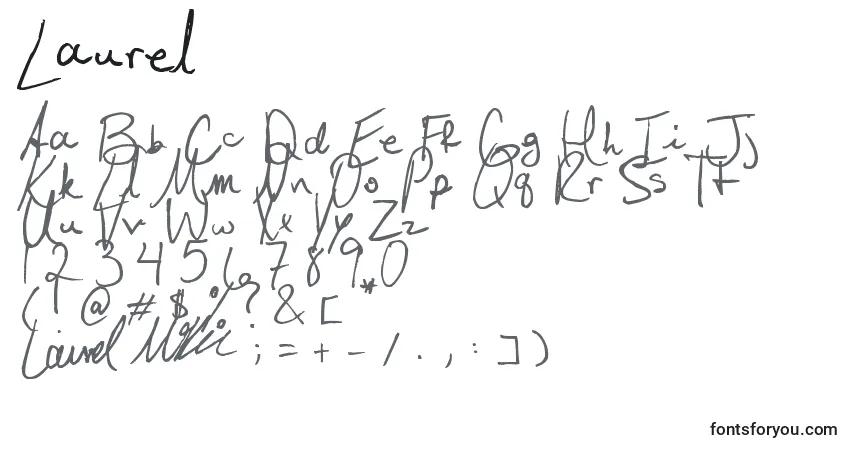 Laurel
Aa Bb Cc Dd Ee Ff Gg Hh Ii Jj
Kk Ll Mm Nn Oo Pp Qq Rr Ss Tt
Uu Vv Ww Xx Yy Zz
1 2 3 4 5 6 7 8 9 0
( ! @ # $ % ? & * [
Laurel ; = + - / . , : ] )
fontsforyou.com